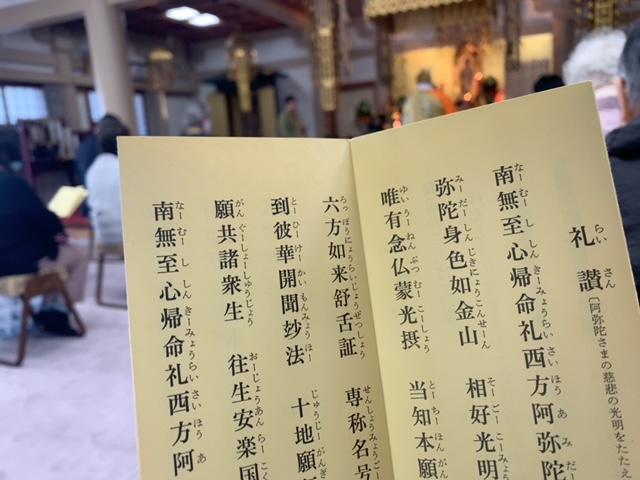 礼讃
〔阿弥陀さまの慈悲の光明をたたえ
南無至心帰命礼西方阿弥陀
弥陀身色如金山 相好光明
唯有念仏蒙光摂 当知本願
六方如来舒舌証 専称名号
到彼華開聞妙法 十地願
願共諸衆生 往生安楽国
南無至心帰命礼西方阿